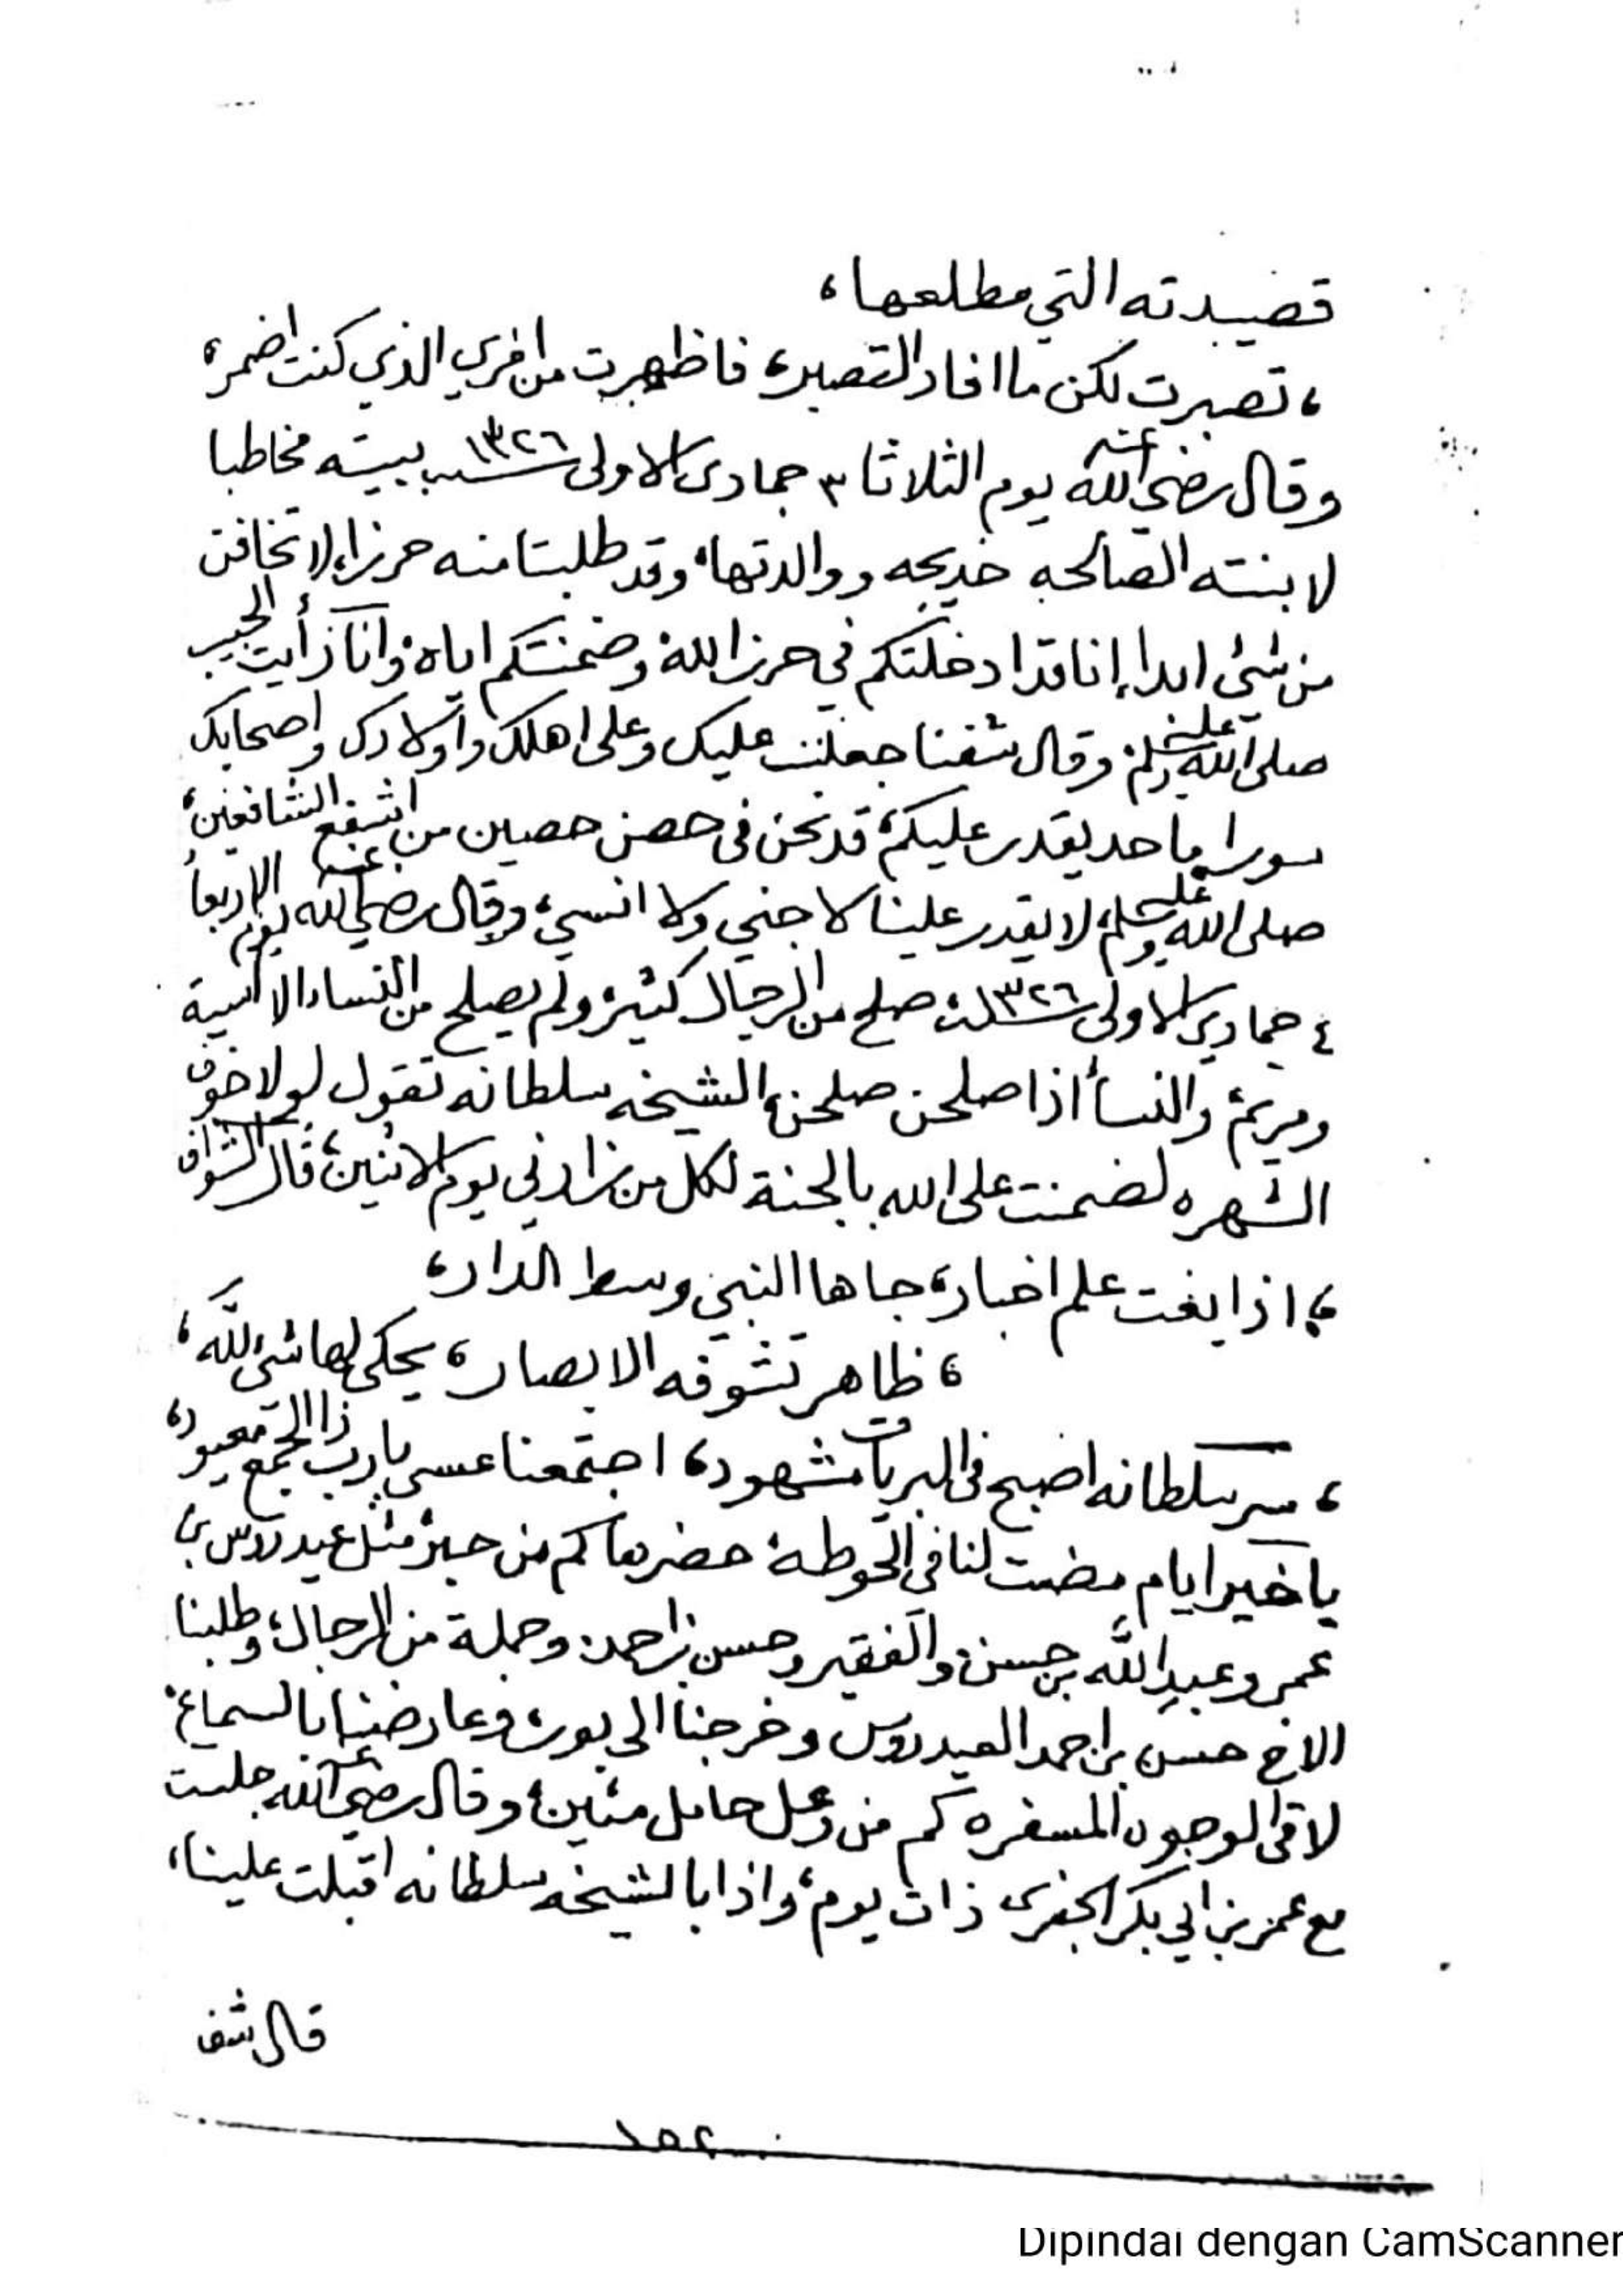 قصيدته التي مطلعها،
، تصبرت لكن ما افاد التصبر، فاظهرت من امري الذي كنت اضمر،
وقال رضي الله عنه يوم الثلاثا ٣ جمادى الاولى سنة ١٣٢٦ ببيته مخاطبا
لابنته الصالحه خديجه ووالدتها، وقد طلبتا منه حرزا، لا تخافن
من شئ ابدا، إنا قد ادخلتكم في حرز الله، وضمنتكم اياه، وانا رأيت الحبيب
صلى الله عليه وسلم، وقال شفنا جعلت عليك وعلى اهلك واولادك واصحابك
سورا ما حد يقدر عليكم، قد نحن في حصن حصين من اشفع الشافعين،
صلى الله عليه وسلم، لا يقدر علينا لا جني ولا انسي، وقال رضي الله عنه يوم الاربعا
٤ جمادى الاولى سنة ١٣٢٦، صلح من الرجال كثير، ولم يصلح من النساء الا آسية
ومريم، والنسأ اذا صلحن صلحن، الشيخه سلطانه تقول لولا خوف
الشهره لضمنت على الله بالجنة لكل من زارني يوم الاثنين، قال الشواف
، اذا بغت علم اخبار، جاها النبي وسط الدار،
، ظاهر تشوفه الابصار، يحكي لها شئ لله،
، سر سلطانه اصبح في البريات مشهود، اجتمعنا عسى يارب ذا الجمع معيود،
يا خير ايام مضت لنا في الحوطة، حضرها كم من حبر، مثل عيدروس بن
عمر وعبدالله بن حسن، والفقير وحسن بن احمد، وجملة من الرجال، وطلبنا
الاخ حسن بن احمد العيدروس وخرجنا الى بور، وعارضنا بالسماع،
لاقى الوجوه المسفره كم من وعل حامل متين، وقال رضي الله عنه جلست
مع عمر بن ابي بكر الجفرى ذات يوم، واذا بالشيخه سلطانه اقبلت علينا،
قال شف
١٥٢
Dipindai dengan CamScanner